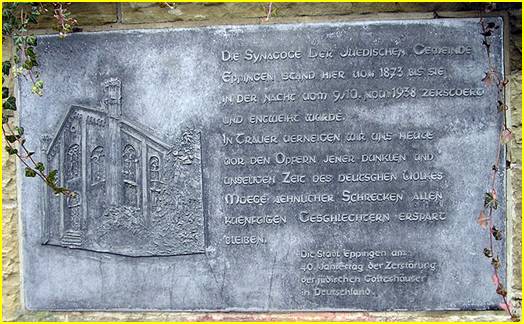 Die Synagoge der Juedischen Gemeinde
Eppingen stand hier vom 1873 bis sie
in der Nacht vom 9./10. Nov. 1938 zerstoert
und entweiht wurde.
In Trauer verneigen wir uns heute
vor den Opfern jener dunklen und
unseligen Zeit des deutschen Volkes
Moege aehnlicher Schrecken allen
kuenftigen Geschlechtern erspart
bleiben.
Die Stadt Eppingen am
40. Jahrestag der Zerstörung
der jüdischen Gotteshäuser
in Deutschland.